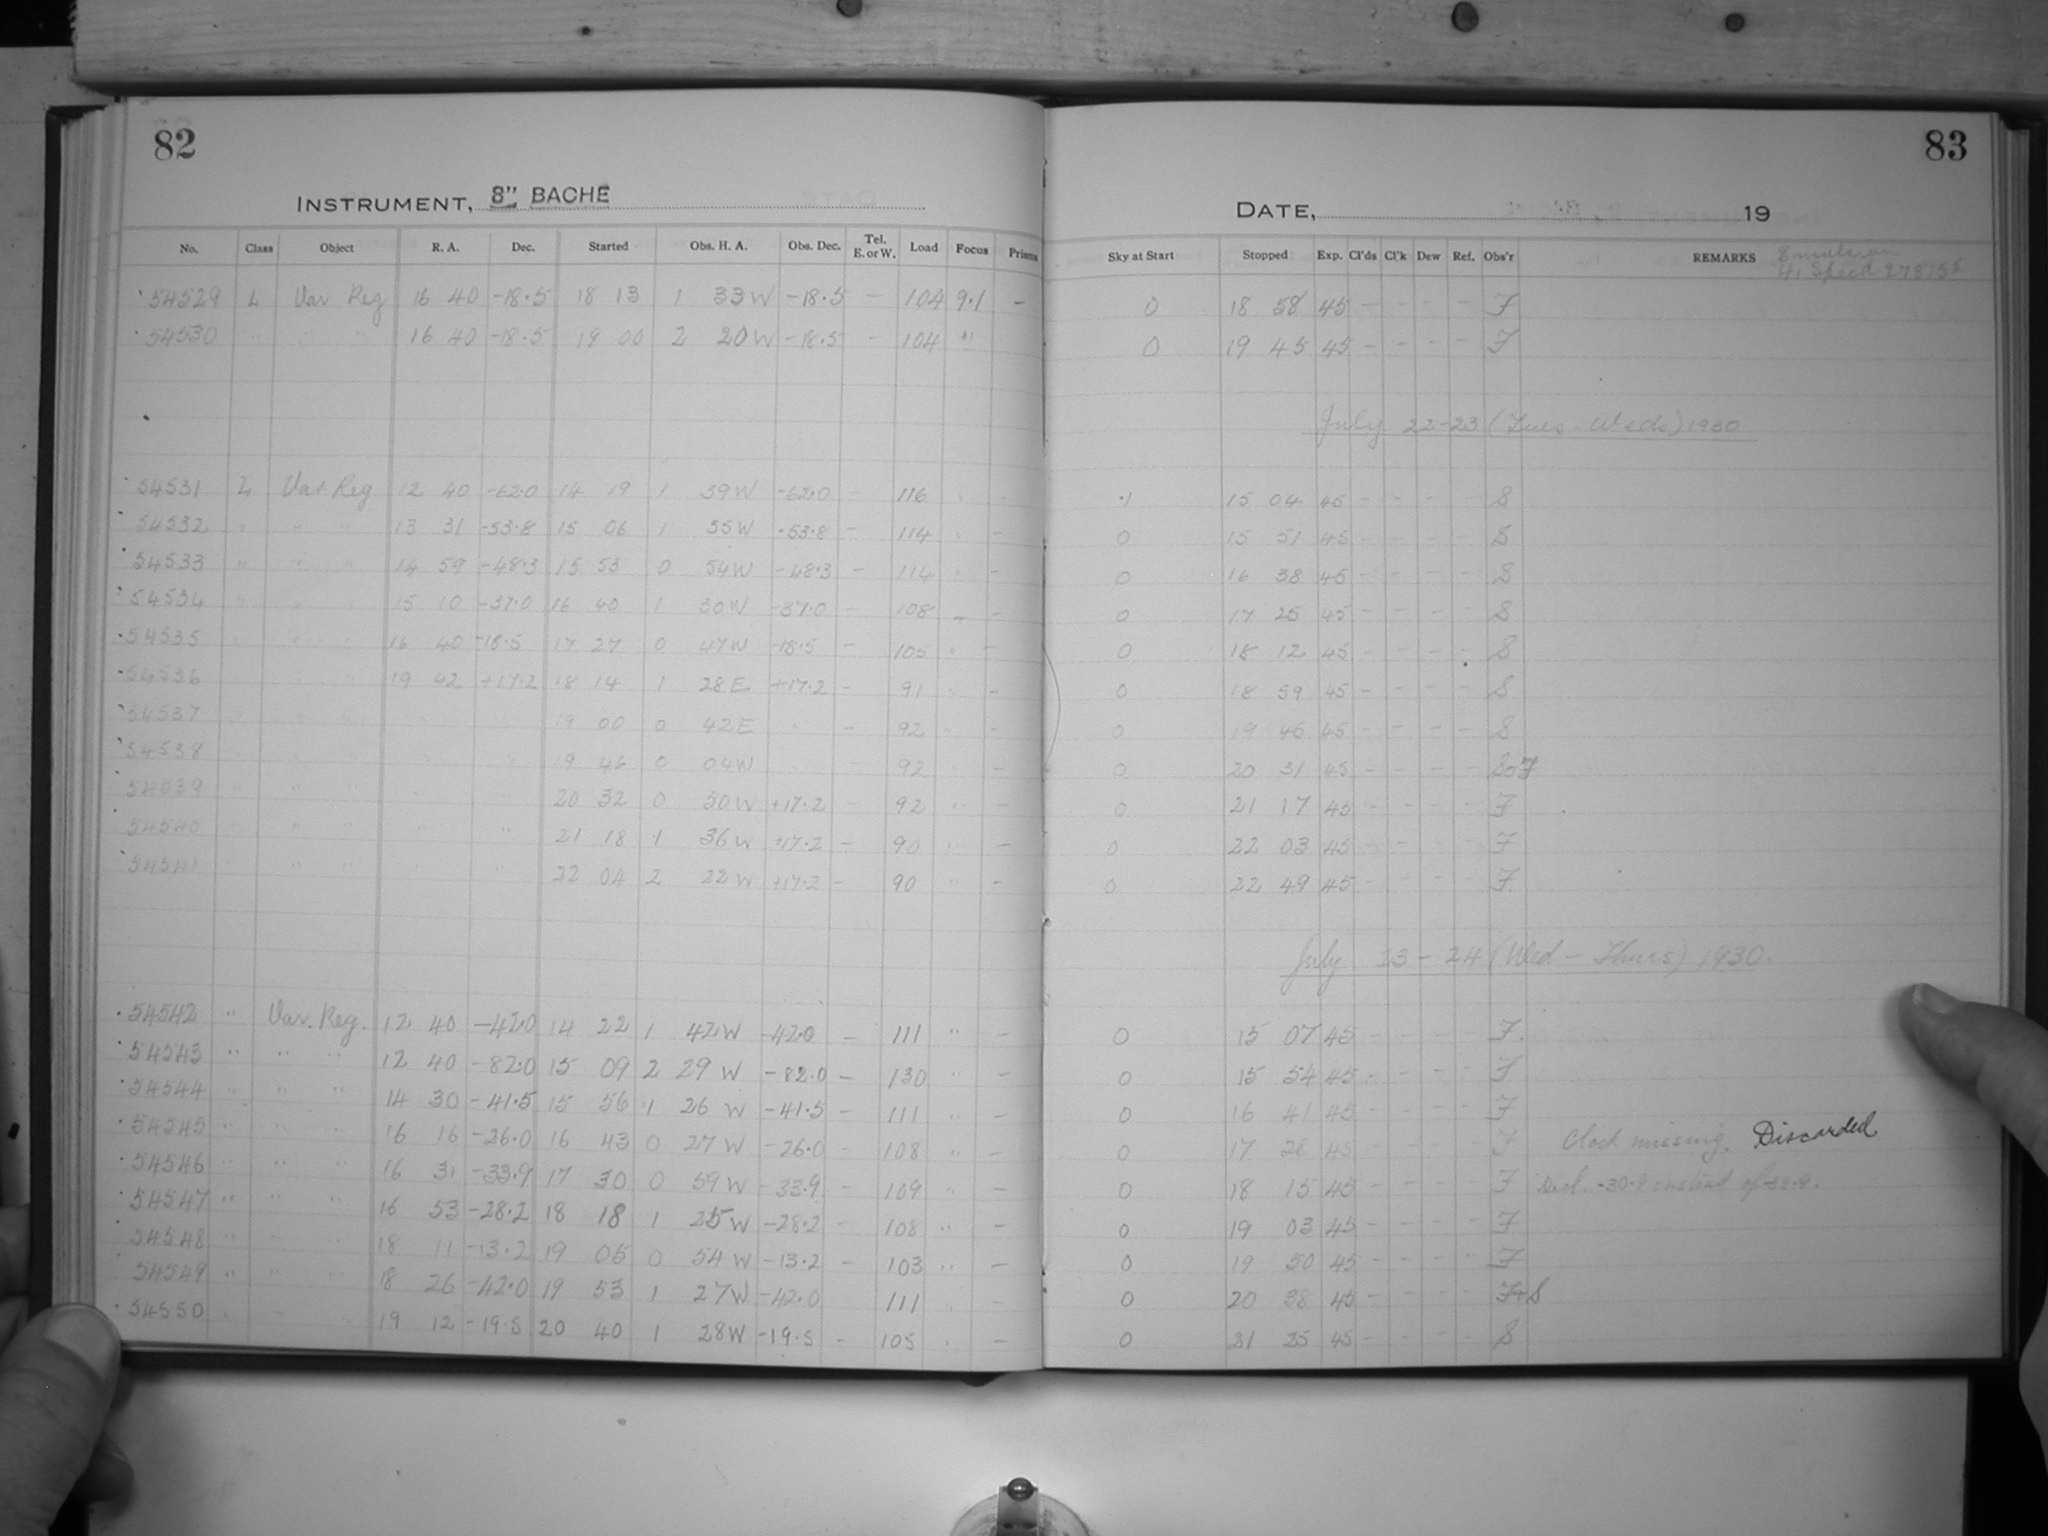 82
83
INSTRUMENT, 8" BACHE
DATE, 19
No. Class Object R. A. Dec. Started Obs. H. A. Obs. Dec. Tel. E. or W. Load Focus Prisms Sky at Start Stopped Exp. Cl'ds Cl'k Dew Ref. Obs'r REMARKS Emulsion Hi Speed 278155
54529 L Var Reg 16 40 -18.5 18 13 1 33W -18.5 - 104 9.1 - 0 18 58 45 - - - - F
54530 " " " 16 40 -18.5 19 00 2 20W -18.5 - 104 " 0 19 45 45 - - - - F
July 22-23 (Tues Weds) 1930
54531 L Var Reg 12 40 -62.0 14 19 1 39W -62.0 - 116 " - .1 15 04 45 - - - - S
54532 " " " 13 31 -53.8 15 06 1 35W -53.8 - 114 " - 0 15 51 45 - - - - S
54533 " " " 14 59 -48.3 15 53 0 54W -48.3 - 114 " - 0 16 38 45 - - - - S
54534 " " " 15 10 -37.0 16 40 1 30W -37.0 - 108 " - 0 17 25 45 - - - - S
54535 " " " 16 40 -18.5 17 27 0 47W -18.5 - 105 " - 0 18 12 45 - - - - S
54536 " " " 19 42 +17.2 18 14 1 28E +17.2 - 91 " - 0 18 59 45 - - - - S
54537 " " " " " 19 00 0 42E " - 92 " - 0 19 45 45 - - - - S
54538 " " " " " 19 46 0 04W " - 92 " - 0 20 31 45 - - - - S F
54539 " " " " " 20 32 0 50W +17.2 - 92 " - 0 21 17 45 - - - - F
54540 " " " " " 21 18 1 36W +17.2 - 90 " - 0 22 03 45 - - - - F
54541 " " " " " 22 04 2 22W +17.2 - 90 " - 0 22 49 45 - - - - F.
July 23-24 (Wed - Thurs) 1930.
54542 " Var. Reg. 12 40 -42.0 14 22 1 42W -42.0 - 111 " - 0 15 07 45 - - - - F.
54543 " " " 12 40 -82.0 15 09 2 29W -82.0 - 130 " - 0 15 54 45 - - - - F
54544 " " " 14 30 -41.5 15 56 1 26W -41.5 - 111 " - 0 16 41 45 - - - - F
54545 " " " 16 16 -26.0 16 43 0 27W -26.0 - 108 " - 0 17 28 45 - - - - F Clock missing. Discarded
54546 " " " 16 31 -33.9 17 30 0 59W -33.9 - 109 " - 0 18 15 45 - - - - F Decl. -30.9 instead of
54547 " " " 16 53 -28.2 18 18 1 25W -28.2 - 108 " - 0 19 03 45 - - - - F
54548 " " " 18 11 -13.2 19 05 0 54W -13.2 - 103 " - 0 19 50 45 - - - - F
54549 " " " 18 26 -42.0 19 53 1 27W -42.0 - 111 " - 0 20 38 45 - - - - F & S
54550 " " " 19 12 -19.5 20 40 1 28W -19.5 - 105 " - 0 21 25 45 - - - - S